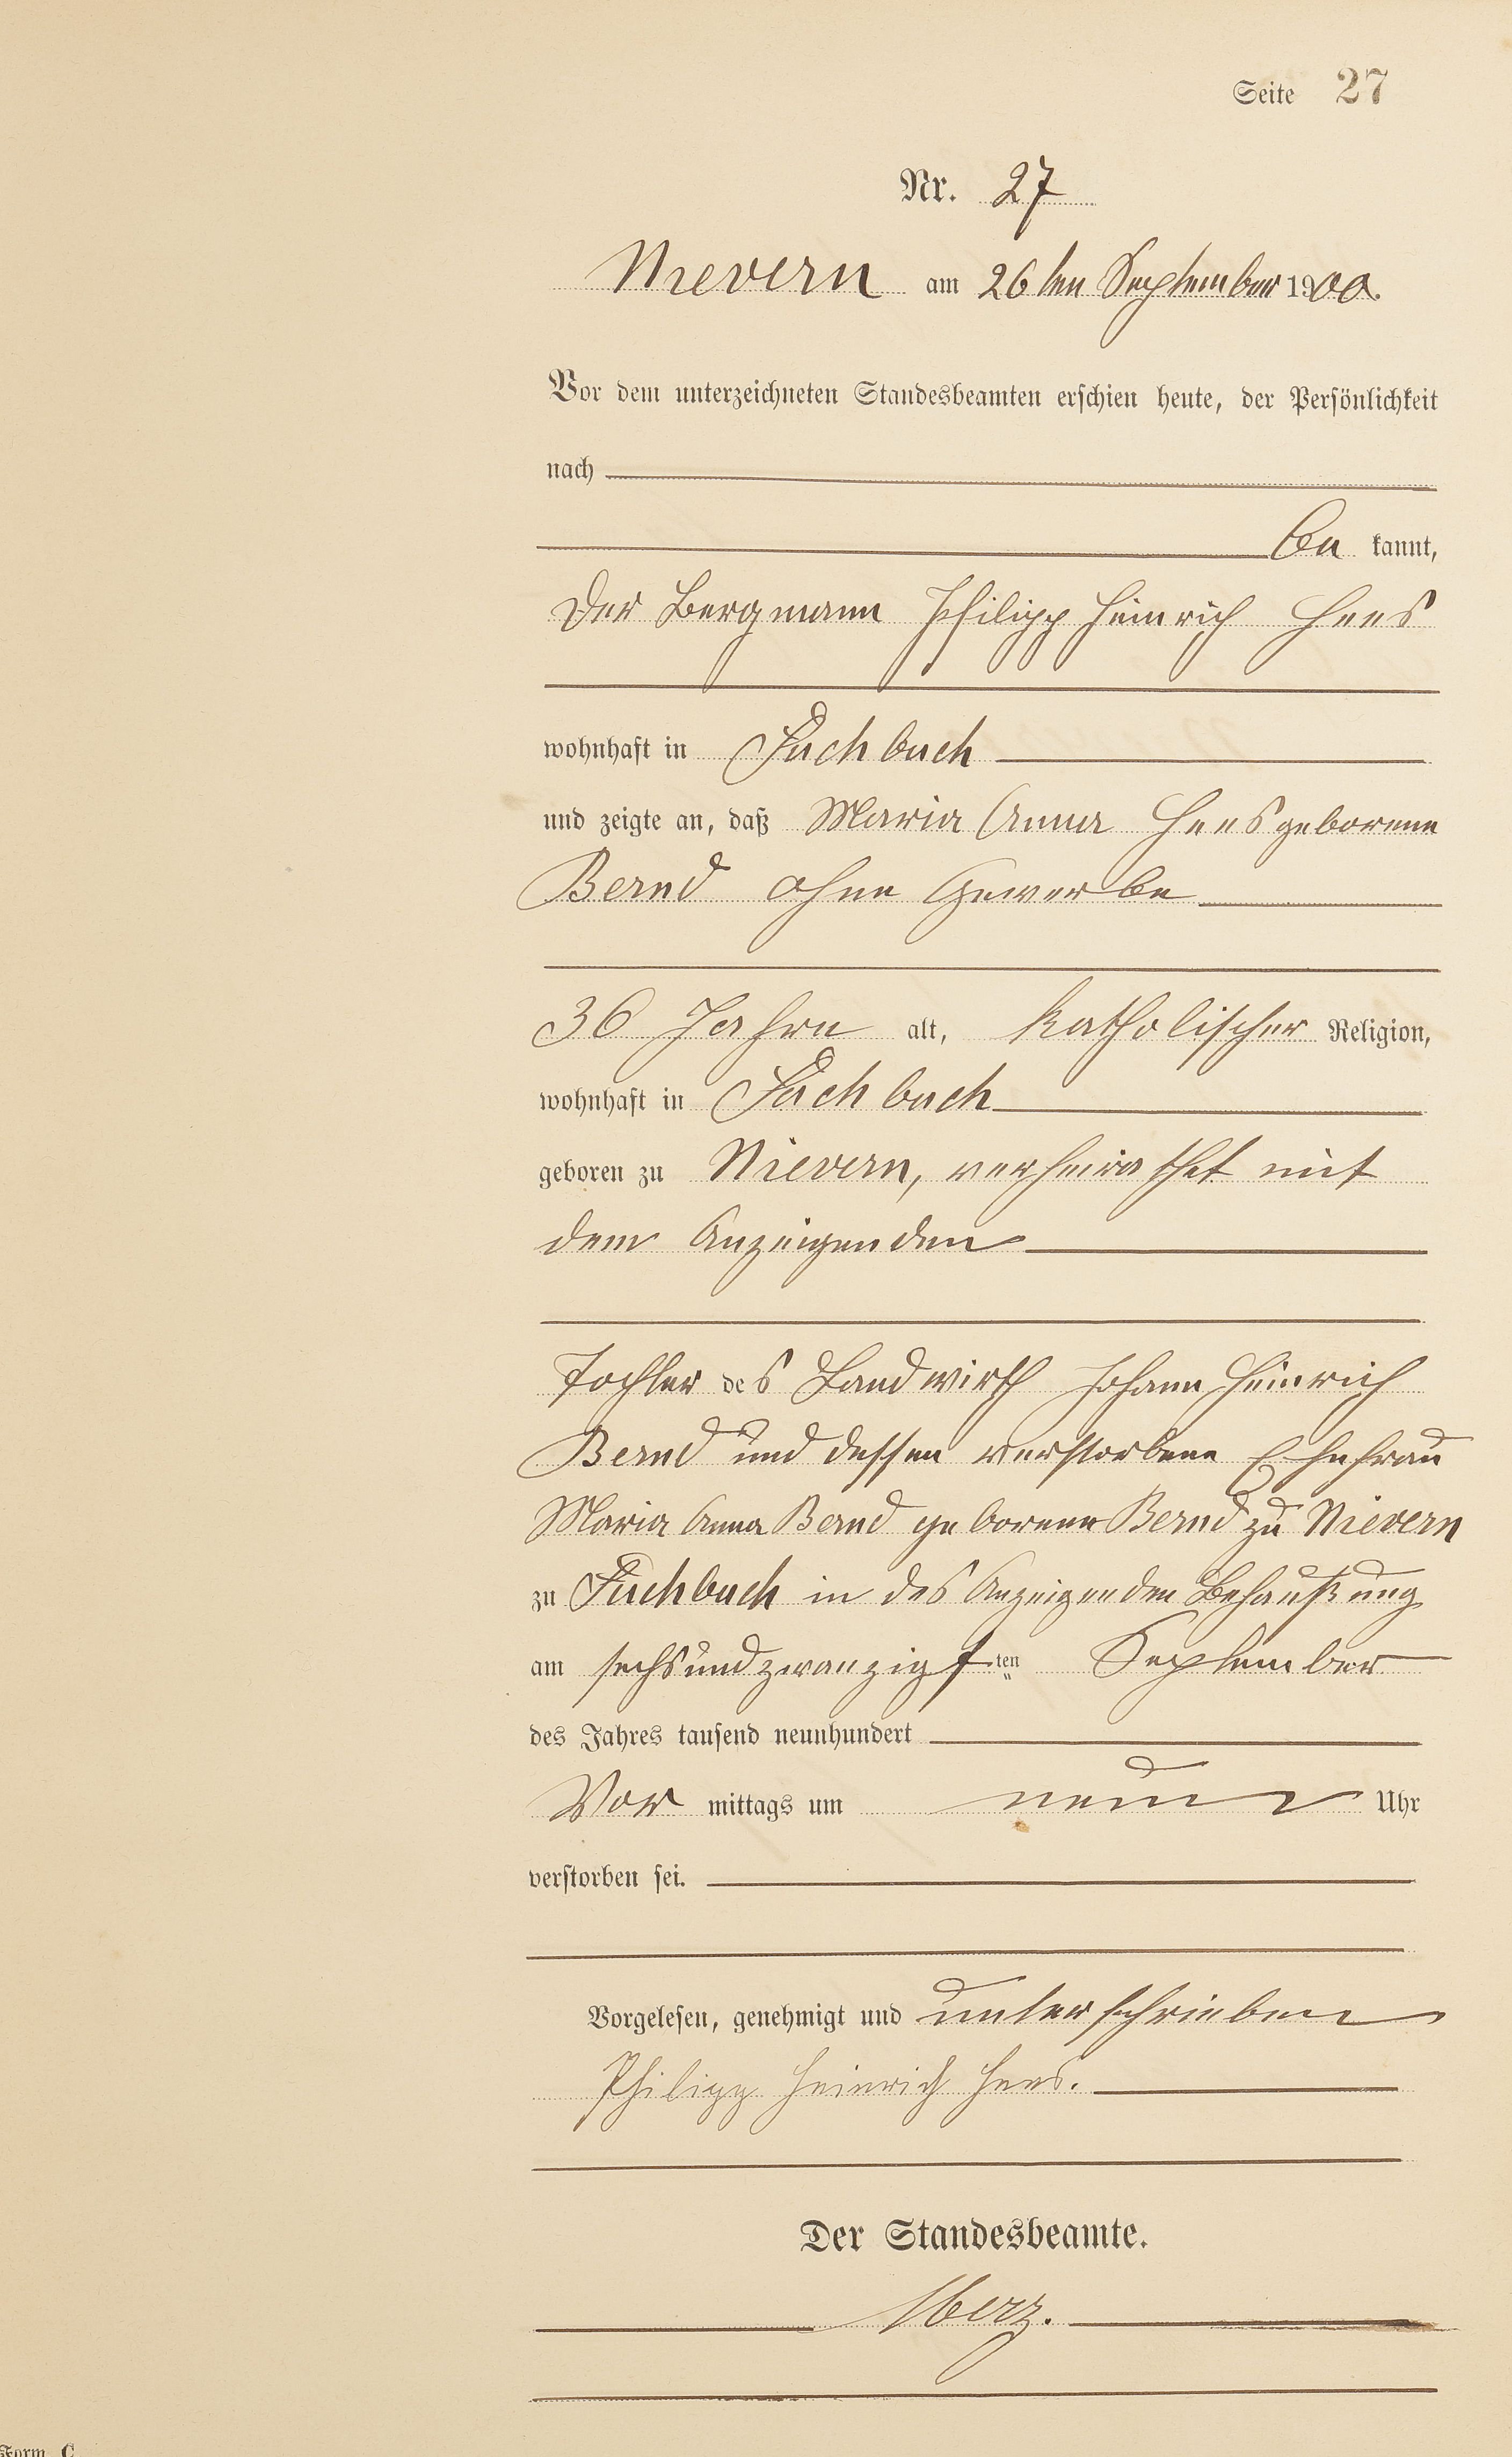 Seite 27
Nr. 27
Nievern am 26ten September 1900.
Vor dem unterzeichneten Standesbeamten erschien heute, der Persönlichkeit
nach
be kannt,
der Bergmann Philipp Heinrich Hees
wohnhaft in Fachbach
und zeigte an, daß Maria Anna Hees geborene
Bernd ohne Gewerbe
36 Jahre alt, katholischer Religion,
wohnhaft in Fachbach
geboren zu Nievern, verheirathet mit
dem Anzeigenden
Tochter des Landwirth Johann Heinrich
Bernd und dessen verstorbene Ehefrau
Maria Anna Bernd geborene Bernd zu Nievern
zu Fachbach in des Anzeigenden Behaußung
am sechsundzwanzigsten September
des Jahres tausend neunhundert
Vor mittags um neun Uhr
verstorben sei.
Vorgelesen, genehmigt und unterschrieben
Philipp Heinrich Hees.
Der Standesbeamte.
Form. C